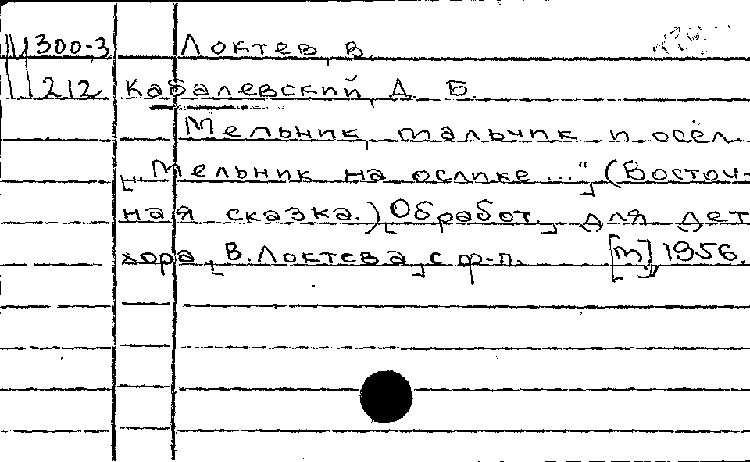 М 300-3 Локтев, В.
212 Кабалевский, Д. Б.
Мельник, мальчик и осёл.
["Мельник на ослике ..."] (Восточ-
ная сказка.) [Обработ.] для дет
хора [В. Локтева] с ф-п. [М], 1956.